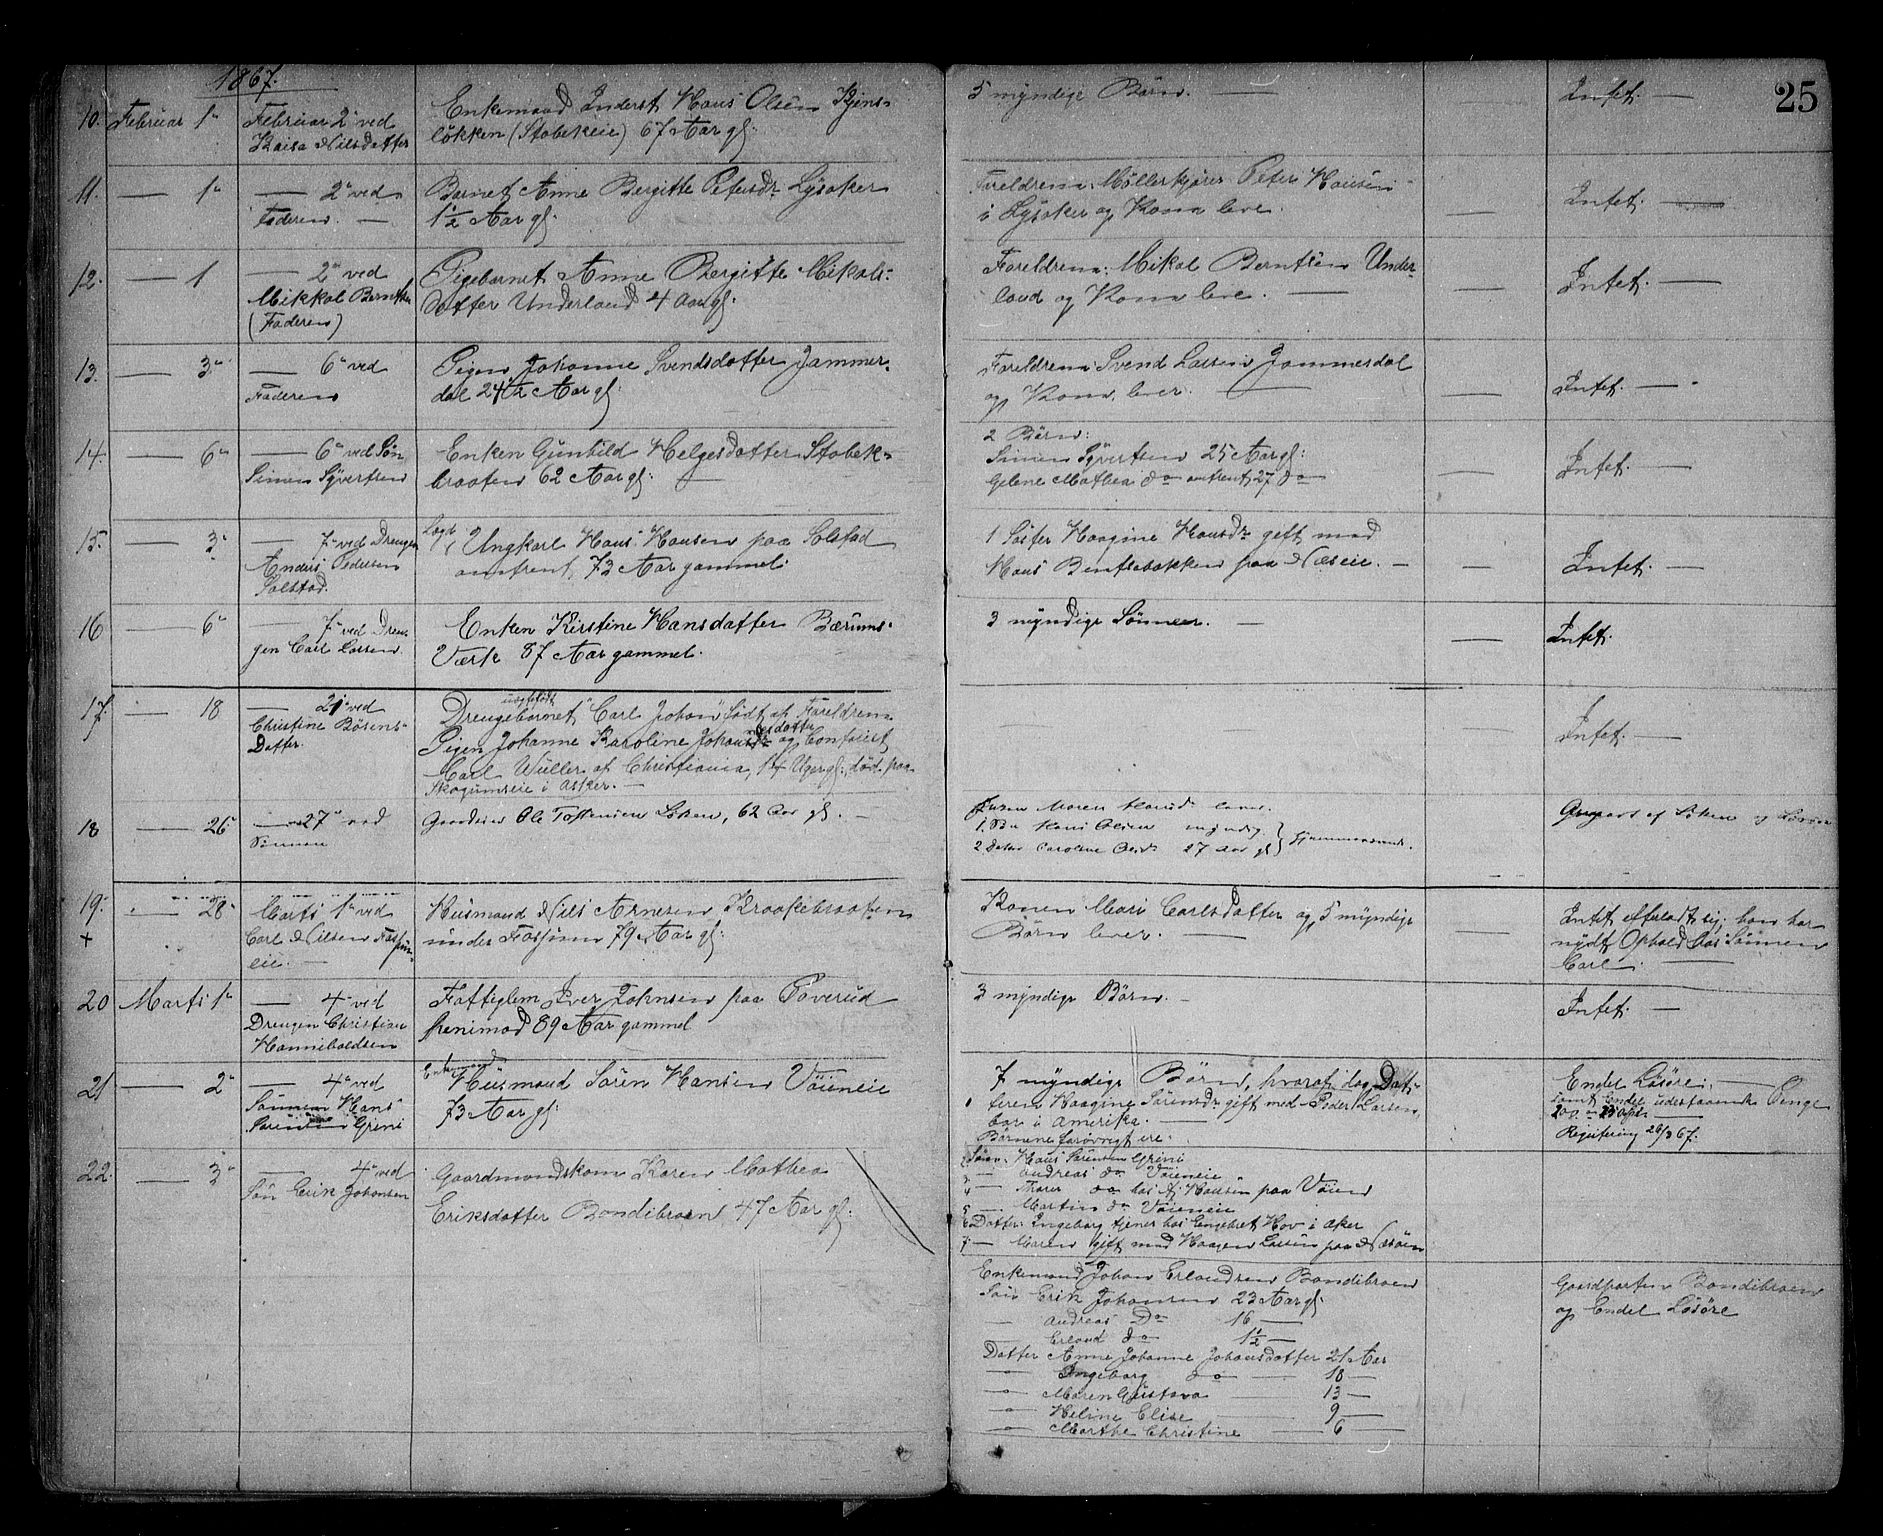 1867.
25
10. Februar 1"
Februar 2" ved
Kaisa Nilsdatter
Enkemand Inderst Hans Olsen Kjens-
løkken (Stobekeie) 67 Aar gl.
5 myndige Børn. —
Intet. —
11. — 1"
— 2" ved
Faderen. —
Barnet Anne Bergitte Petersdr Lysaker
1½ Aar gl.
Foreldrene: Møllerkjører Peter Hansen
i Lysaker og Kone leve.
—
Intet. —
12. — 1
— 2" ved
Mikkal Berntsen
(Faderen)
Pigebarnet Anne Bergitte Mikals-
datter Underland 4 Aar gl.
Foreldrene: Mikal Berntsen Under-
land og Kone leve. —
—
Intet. —
13. — 3"
— 6" ved
Faderen
Pigen Johanne Svendsdatter Jammer-
dal 24½ Aar gl.
Foreldrene Svend Larsen Jammerdal
og Kone lever. —
—
Intet. —
14. — 6"
— 6" ved Søn
Simen Syvertsen
Enken Gunhild Helgesdatter Stobek-
braaten 62 Aar gl. —
2 Børn:
Simen Syvertsen 25 Aar gl.
Gelene Mathea do omtrent 27 do
—
Intet. —
15. — 3"
— 7" ved Drengen
Anders Pedersen
Solstad.
Lagd
Ungkarl Hans Hansen paa Solstad
omtrent 73 Aar gammel.
1 Søster Haagine Hansdr gift med
Hans Bentsebakken paa Næseie. —
—
Intet. —
16 — 6"
— 7" ved Dren-
gen Carl Larsen
Enken Kirstine Hansdatter Bærums-
Værk 87 Aar gammel.
3 myndige Sønner. —
—
Intet.
17. — 18
— 21" ved
Christine Børens-
Datter.
uægtefødt
Drengebarnet "Carl Johan" født af Foreldrene
Pigen Johanne Karoline Johansdatter og
Carl Wüller af Christiania, 14 Uger gl., død paa
Skogumseie i Asker. —
Intet. —
18 — 26"
— 27" ved
Sønnen
Gaardeier Ole Tostensen Løken, 62 Aar gl. —
Enken Maren Hansdr lever.
1. Søn Hans Olsen myndig
2 Datter Caroline Olsdr 27 Aar gl. } hjemmeværende.
af Løken og Løsøre
19. — 28"
+
Marts 1" ved
Carl Nilsen Fossum-
eie. —
Husmand Nils Arnesen Kraakebraaten
under Fossum 79 Aar gl.
Konen Mari Carlsdatter og 5 myndige
Børn lever. —
Intet efterladt sig; han har
nydt Ophold hos Sønnen
Carl. —
20 Marts 1"
— 4" ved
Drengen Christian
Hanniboldsen
Fattiglem Iver Johnsen paa Toverud
henimod 89 Aar gammel
3 myndige Børn. —
Intet. —
21 — 2"
— 4" ved
Sønnen Hans
Sørensen Grini
Enkemand
Husmand Søren Hansen Vøieneie
73 Aar gl.
7 myndige Børn, hvoraf dog Dat-
1 teren Haagine Sørensdr gift med Peder Larsen,
bor i Amerika. —
Børnene forøvrigt ere:
2 Sønn. Hans Sørensen Grini
3 — Andreas do Vøieneie
4 — Thorer do hos Aj Hansen paa Vøien
5 — Martin do Vøieneie
6 Datter Ingeborg tjener hos Engebret Hov i Aker
7 — Maren gift med Haagen Larsen paa Næsøen
Endel Løsøre; —
samt Endel udestaaende Penge
Registering 26/3 67.
22. — 3"
— 4" ved
Søn Erik Johansen
Gaardmandskone Karen Mathea
Eriksdatter Bondibroen 47 Aar gl.
Enkemand Johan Erlandsen Bondibroen
Søn Erik Johansen 23 Aar gl.
— Andreas Do 16 —
— Erland do 1½ —
Datter Anne Johanne Johansdatter 21 Aar
— Ingeborg do — 18 —
— Maren Gustava — 13 —
— Heline Elise — 9 —
— Marthe Christine — 6 —
Gaardparten Bondibroen
og Endel Løsøre